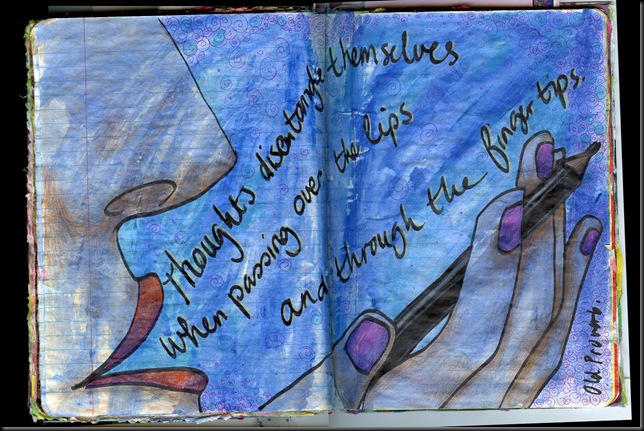 Thoughts disentangle themselves
When passing over the lips
and through the finger tips.
Old Proverb.